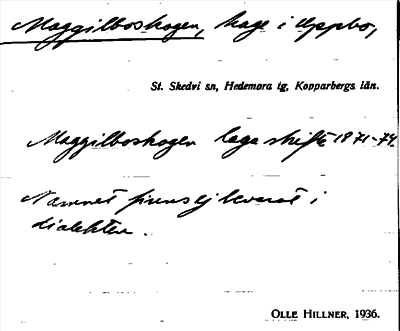 Maggilboskogen, hage i Uppbo,
St. Skedvi sn, Hedemora tg, Kopparbergs län.
Maggilboskogen laga skifte 1871-74.
Namnet finns ej bevarat i
dialekten.
OLLE HILLNER, 1936.